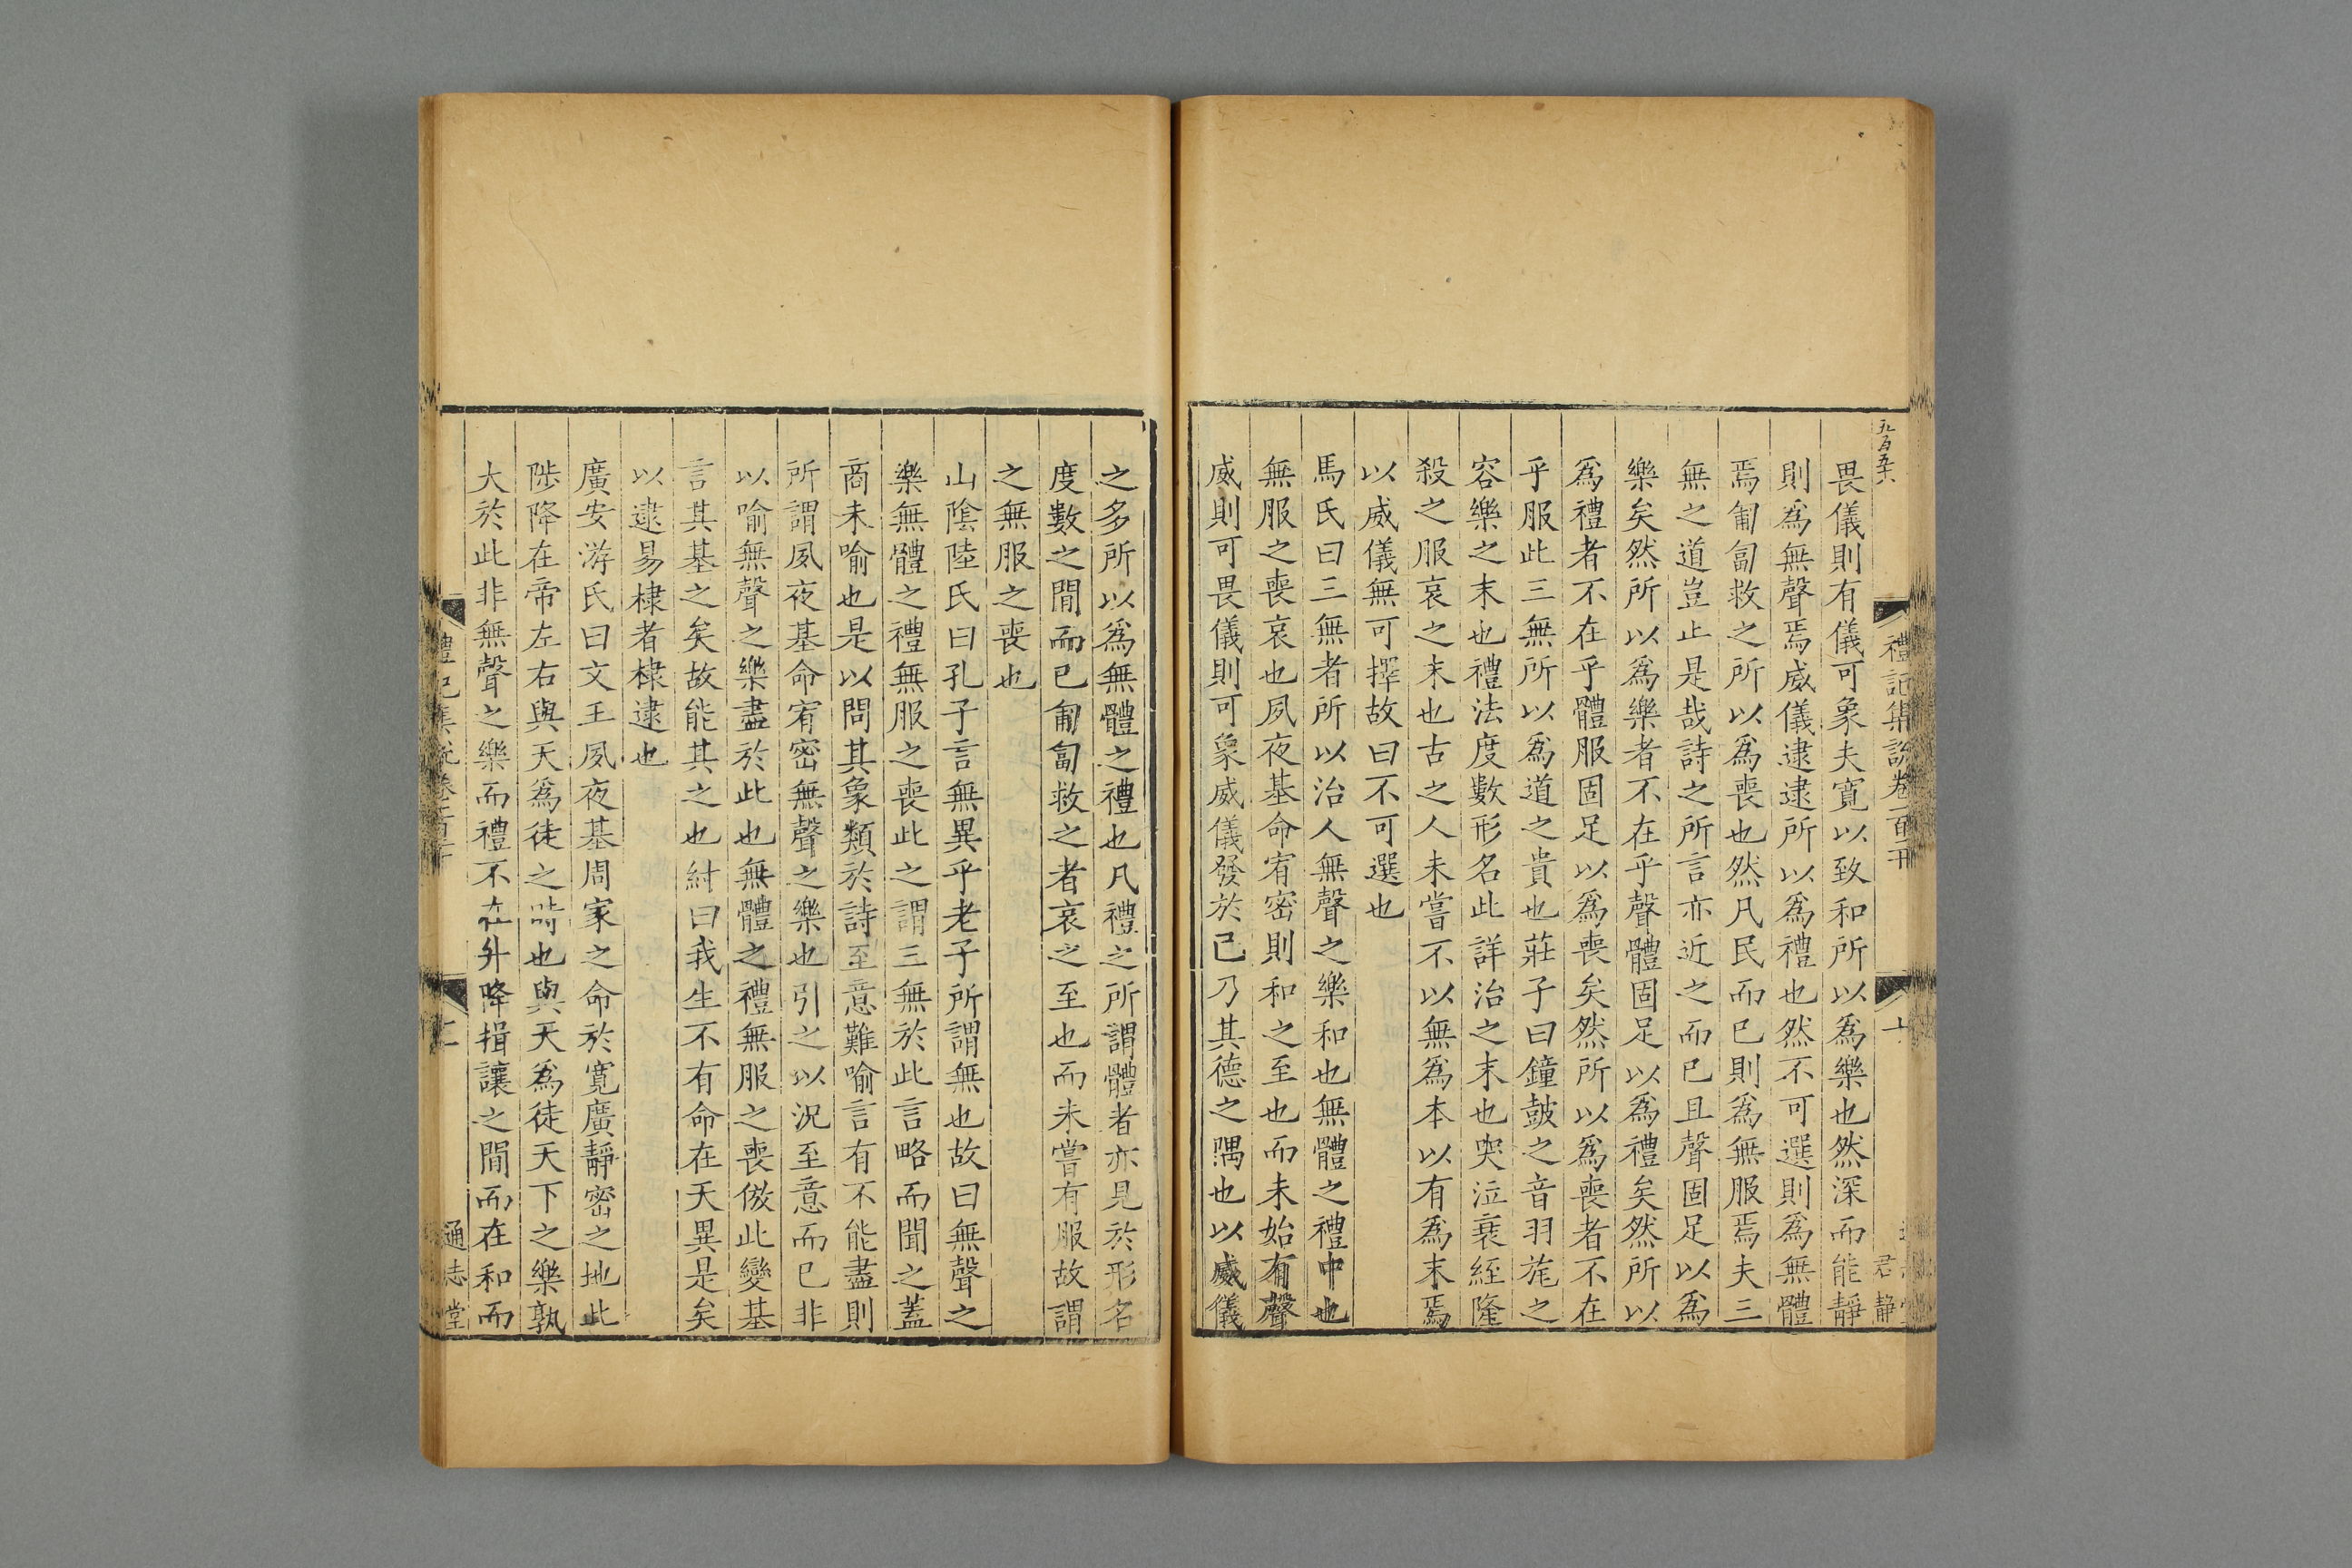 五百五十六
禮記集說卷一百二十
十
君靜
畏儀則有儀可象夫寛以致和所以爲樂也然深而能靜
則爲無聲焉威儀逮逮所以爲禮也然不可選則爲無體
焉匍匐救之所以爲喪也然凡民而已則爲無服焉夫三
無之道豈止是哉詩之所言亦近之而已且聲固足以爲
樂矣然所以爲樂者不在乎聲體固足以爲禮矣然所以
爲禮者不在乎體服固足以爲喪矣然所以爲喪者不在
乎服此三無所以爲道之貴也莊子曰鐘皷之音羽旄之
容樂之末也禮法度數形名此詳治之末也哭泣衰絰隆
殺之服哀之末也古之人未嘗不以無爲本以有爲末焉
以威儀無可擇故曰不可選也
馬氏曰三無者所以治人無聲之樂和也無體之禮中也
無服之喪哀也夙夜基命宥密則和之至也而未始有聲
威則可畏儀則可象威儀發於已乃其德之隅也以威儀
之多所以爲無體之禮也凡禮之所謂體者亦見於形名
度數之閒而已匍匐救之者哀之至也而未嘗有服故謂
之無服之喪也
山陰陸氏曰孔子言無異乎老子所謂無也故曰無聲之
樂無體之禮無服之喪此之謂三無於此言略而聞之蓋
商未喻也是以問其象類於詩至意難喻言有不能盡則
所謂夙夜基命宥密無聲之樂也引之以況至意而已非
以喻無聲之樂盡於此也無體之禮無服之喪倣此變基
言其基之矣故能其之也紂曰我生不有命在天異是矣
以逮易棣者棣逮也
廣安游氏曰文王夙夜基周家之命於寛廣靜密之地此
陟降在帝左右與天爲徒之時也與天爲徒天下之樂孰
大於此非無聲之樂而禮不在升降揖讓之閒而在和而
禮記集說卷一百二十
通志堂